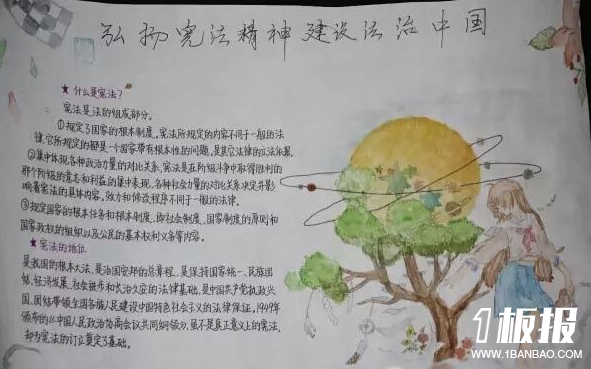 弘扬宪法精神建设法治中国
★什么是宪法？
宪法是法的组成部分。
①规定了国家的根本制度，宪法所规定的内容不同于一般的法
律，它所规定的都是一个国家带有根本性的问题，是其它法律的立法依据。
②集中体现各种政治力量的对比关系，宪法是在阶级斗争中取得胜利的
那个阶级的意志和利益的集中表现，各种社会力量的对比关系决定并影
响着宪法的具体内容。效力和修改程序不同于一般的法律。
③规定国家的根本任务和根本制度，即社会制度、国家制度的原则和
国家政权的组织以及公民的基本权利义务等内容。
★宪法的地位
是我国的根本大法，是治国安邦的总章程，是保持国家统一、民族团
结、经济发展、社会进步和长治久安的法律基础，是中国共产党执政兴
国、团结带领全国各族人民建设中国特色社会主义的法律保证，1949年
颁布的《中国人民政治协商会议共同纲领》，虽不是真正意义上的宪法，
却为宪法的订立奠定了基础。
1板报
WWW.1BANBAO.COM